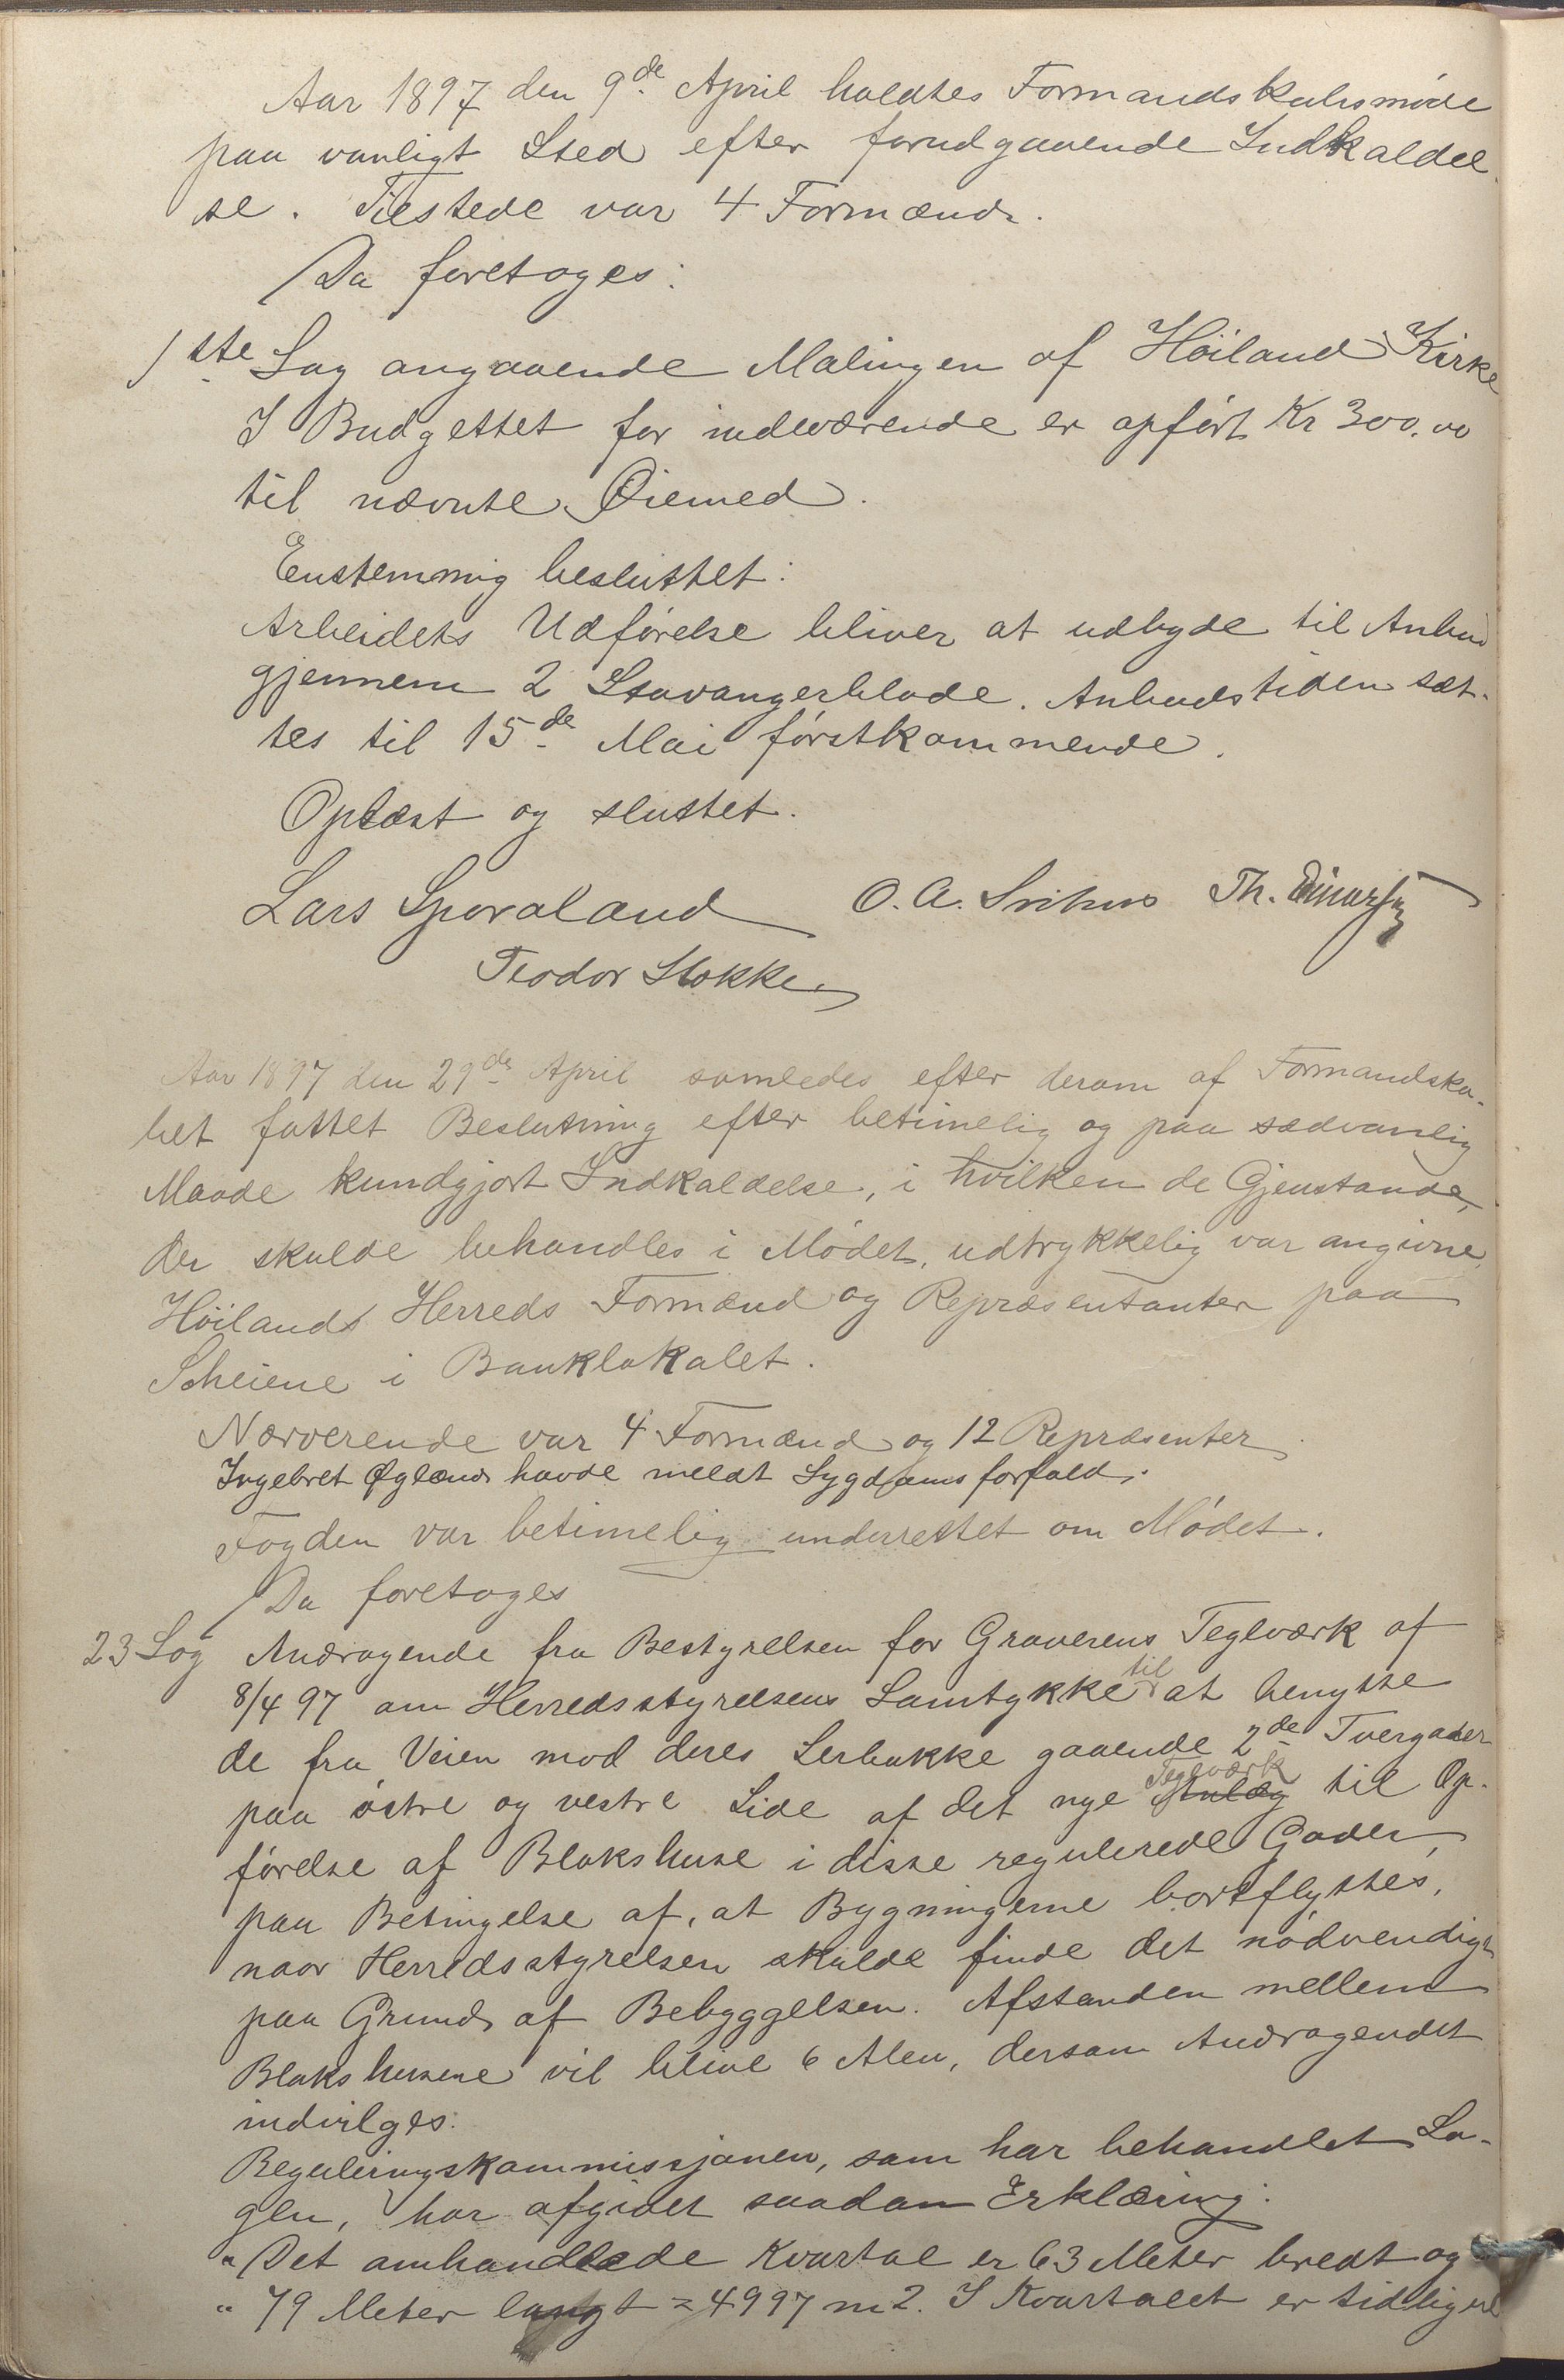 Aar 1897 den 9de April holdtes Formandskabsmøde
paa vanligt Sted efter forudgaaende Indkaldel-
se. Tilstede var 4 Formænd.
Da foretoges:
1ste Sag angaaende Malingen af Høiland Kirke
I Budgettet for indeværende er opført Kr 300.00
til nævnte Øiemed.
Enstemmig besluttet:
Arbeidets Udførelse bliver at udbyde til Anbud
gjennem 2 Stavangerblade. Anbudstiden sæt-
tes til 15de Mai førstkommende.
Oplæst og sluttet.
Lars Sporaland O. A. Srihus Th.
Teodor Stokke
Aar 1897 den 29de April samledes efter derom af Formandska-
bet fattet Beslutning efter betimelig og paa sædvanlig
Maade kundgjort Indkaldelse, i hvilken de Gjenstande,
der skulde behandles i Mødet, udtrykkelig var angivne,
Høilands Herreds Formænd og Repræsentanter paa
Scheiene i Banklokalet.
Nærverende var 4 Formænd og 12 Repræsenter
Ingebret Øglænd havde meldt Sygdomsforfald.
Fogden var betimelig underrettet om Mødet.
Da foretoges
23 Sag Andragende fra Bestyrelsen for Graverens Teglværk af
8/4 97 om Herredsstyrelsens Samtykke til at benytte
de fra Veien mod deres Lerbakke gaaende 2de Tvergader
paa østre og vestre Side af det nye Anlæg Teglværk til Op-
førelse af Blokshuse i disse regulerede Gader,
paa Betingelse af, at Bygningerne bortflyttes,
naar Herredsstyrelsen skulde finde det nødvendigt
paa Grund af Bebyggelsen. Afstanden mellem
Blokshusene vil blive 6 Alen, dersom Andragendet
indvilges.
Reguleringskommissjonen, som har behandlet Sa-
gen, har afgivet saadan Erklæring:
"Det omhandlede Kvartal er 63 Meter bredt og
" 79 Meter langt = 4997 m2. I Kvartalet er tidligere